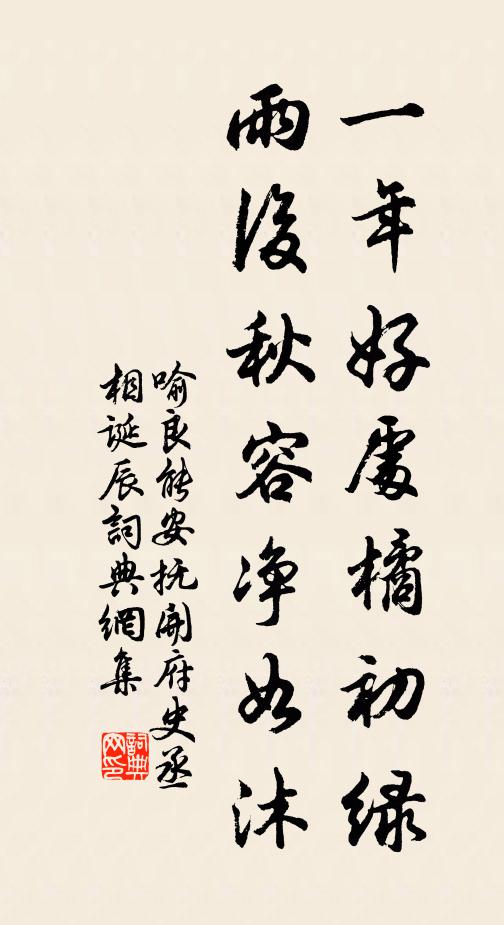 一年好處橘初緑
雨後秋容净如沐
喻良能安抚開府史丞
相誕辰詞典網集
詞典
网印